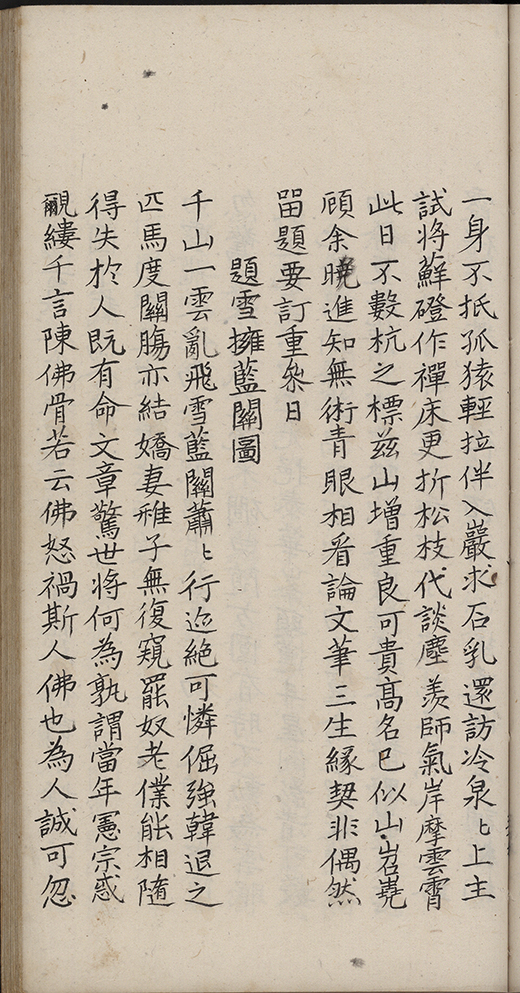 一身不抵孤猿輕拉伴入巖求石乳還訪冷泉〻上主
試將蘚磴作禪床更折松枝代談麈羡師氣岸摩雲霄
此日不數杭之標茲山增重良可貴高名已似山岧嶤
頋余曉進知無術青眼相看論文筆三生緣契非偶然
留題要訂重來日
題雪擁藍關圖
千山一雲亂飛雪藍關蕭〻行迹絕可憐倔強韓退之
匹馬度關膓亦結嬌妻稚子無復窺罷奴老僕能相隨
得失扵人既有命文章驚世將何為孰謂當年憲宗惑
覼縷千言陳佛骨若云佛怒禍斯人佛也為人誠可忽